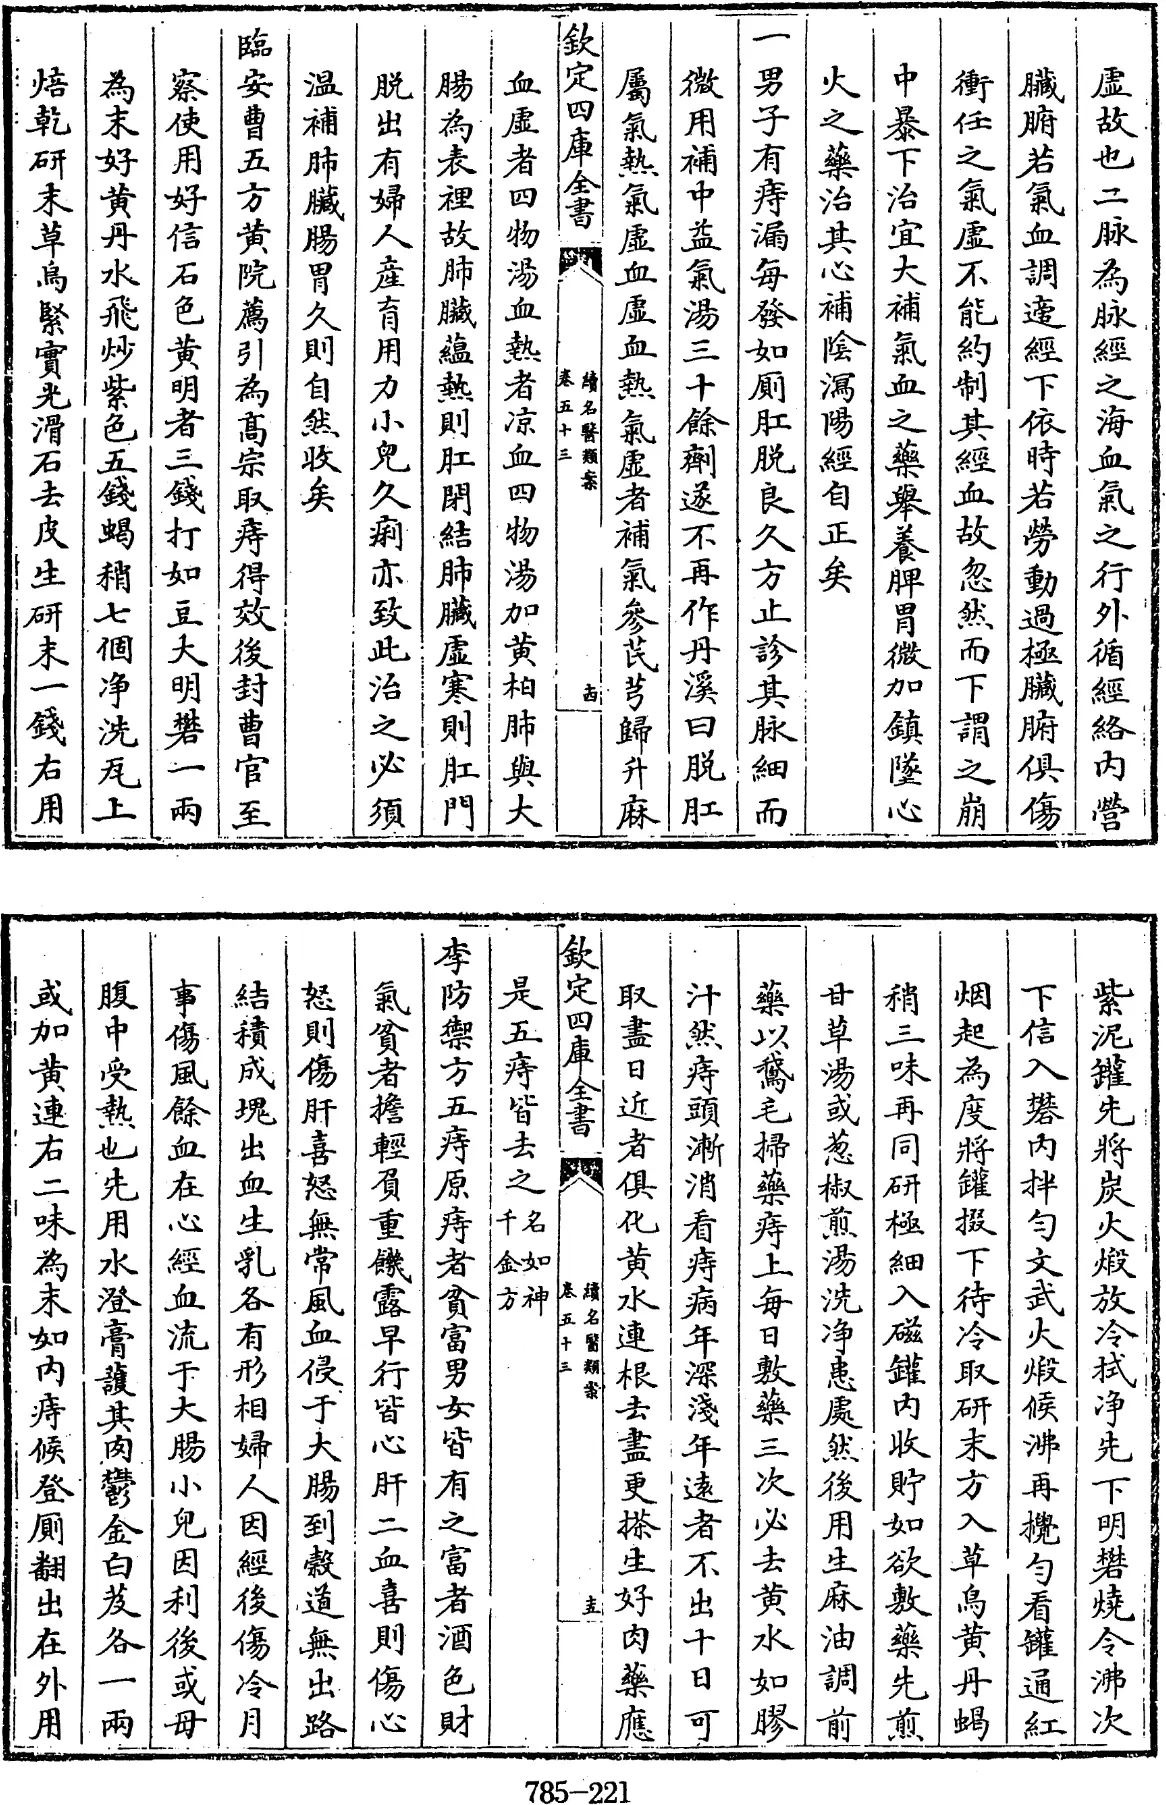 虛故也二脉為脉經之海血氣之行外循經絡内營
臟腑若氣血調適經下依時若勞動過極臟腑俱傷
衝任之氣虛不能約制其經血故忽然而下謂之崩
中暴下治宜大補氣血之藥舉養脾胃微加鎮墜心
火之藥治其心補陰瀉陽經自正矣
一男子有痔漏每發如厠肛脱良久方止診其脉細而
微用補中益氣湯三十餘劑遂不再作丹溪曰脱肛
屬氣熱氣虛血虛血熱氣虛者補氣參芪芎歸升麻
欽定四庫全書
續名醫類案
卷五十三
十四
血虛者四物湯血熱者凉血四物湯加黄柏肺與大
腸為表裡故肺臟藴熱則肛閉結肺臟虛寒則肛門
脱出有婦人産育用力小兒久痢亦致此治之必須
温補肺臟腸胃久則自然收矣
臨安曹五方黄院薦引為髙宗取痔得效後封曹官至
察使用好信石色黄明者三錢打如豆大明礬一兩
為末好黄丹水飛炒紫色五錢蝎稍七個净洗瓦上
焙乾研末草烏緊實光滑石去皮生研末一錢右用
紫泥罐先將炭火煅放冷拭净先下明礬燒令沸次
下信入礬内拌匀文武火煅候沸再攪匀看罐通紅
烟起為度將罐掇下待冷取研末方入草烏黄丹蝎
稍三味再同研極細入磁罐内收貯如欲敷藥先煎
甘草湯或葱椒煎湯洗净患處然後用生麻油調前
藥以鵞毛掃藥痔上每日敷藥三次必去黄水如膠
汁然痔頭漸消看痔病年深淺年遠者不出十日可
取盡日近者俱化黄水連根去盡更搽生好肉藥應
欽定四庫全書
續名醫類案
卷五十三
十五
是五痔皆去之名如神千金方
李防禦方五痔原痔者貧富男女皆有之富者酒色財
氣貧者擔輕負重饑露早行皆心肝二血喜則傷心
怒則傷肝喜怒無常風血侵于大腸到榖道無出路
結積成塊出血生乳各有形相婦人因經後傷冷月
事傷風餘血在心經血流于大腸小兒因利後或母
腹中受熱也先用水澄膏護其肉鬱金白芨各一兩
或加黄連右二味為末如内痔候登厠翻出在外用
785-221